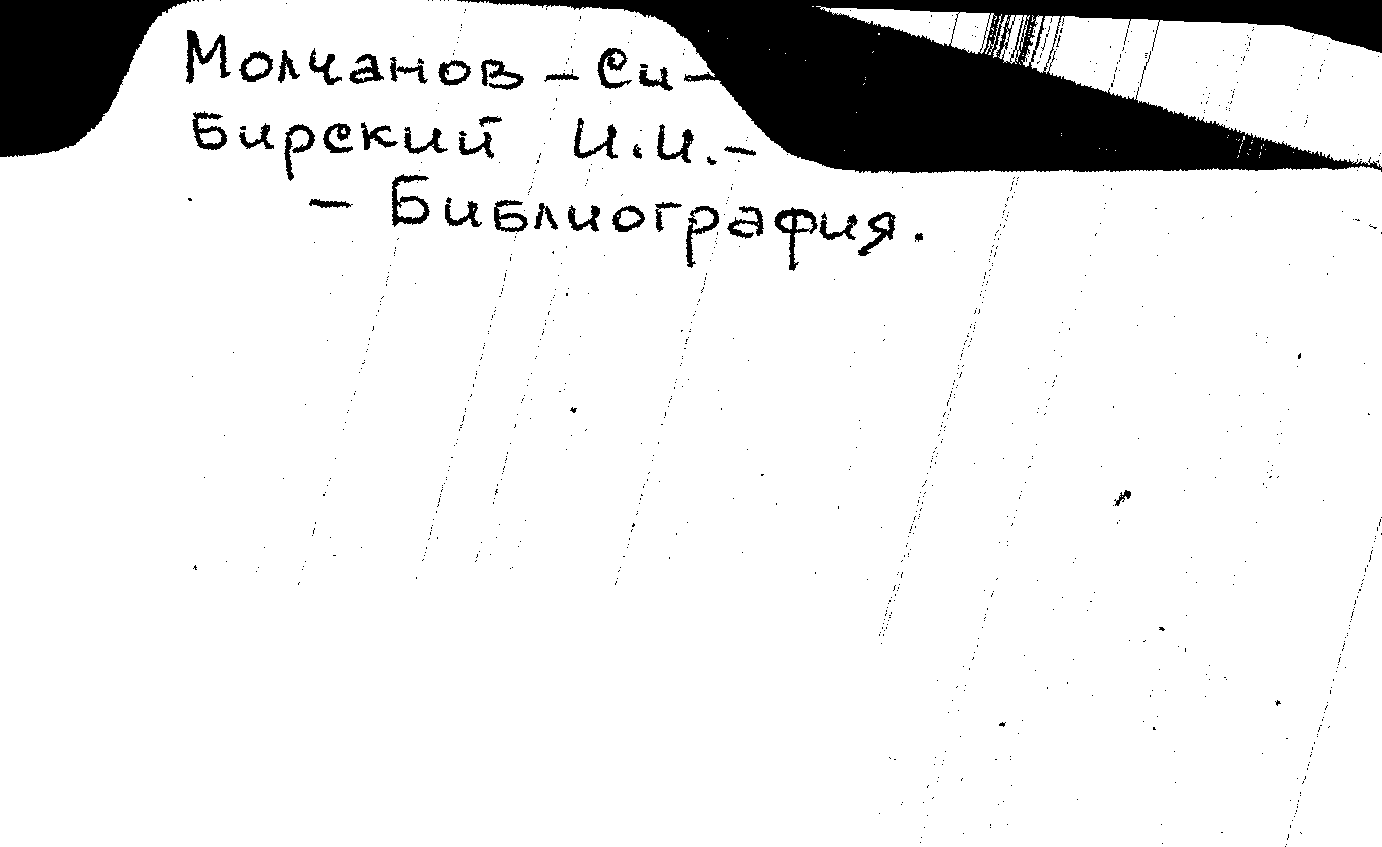 Молчанов - Си -
Бирский И.И. -
- Библиография.